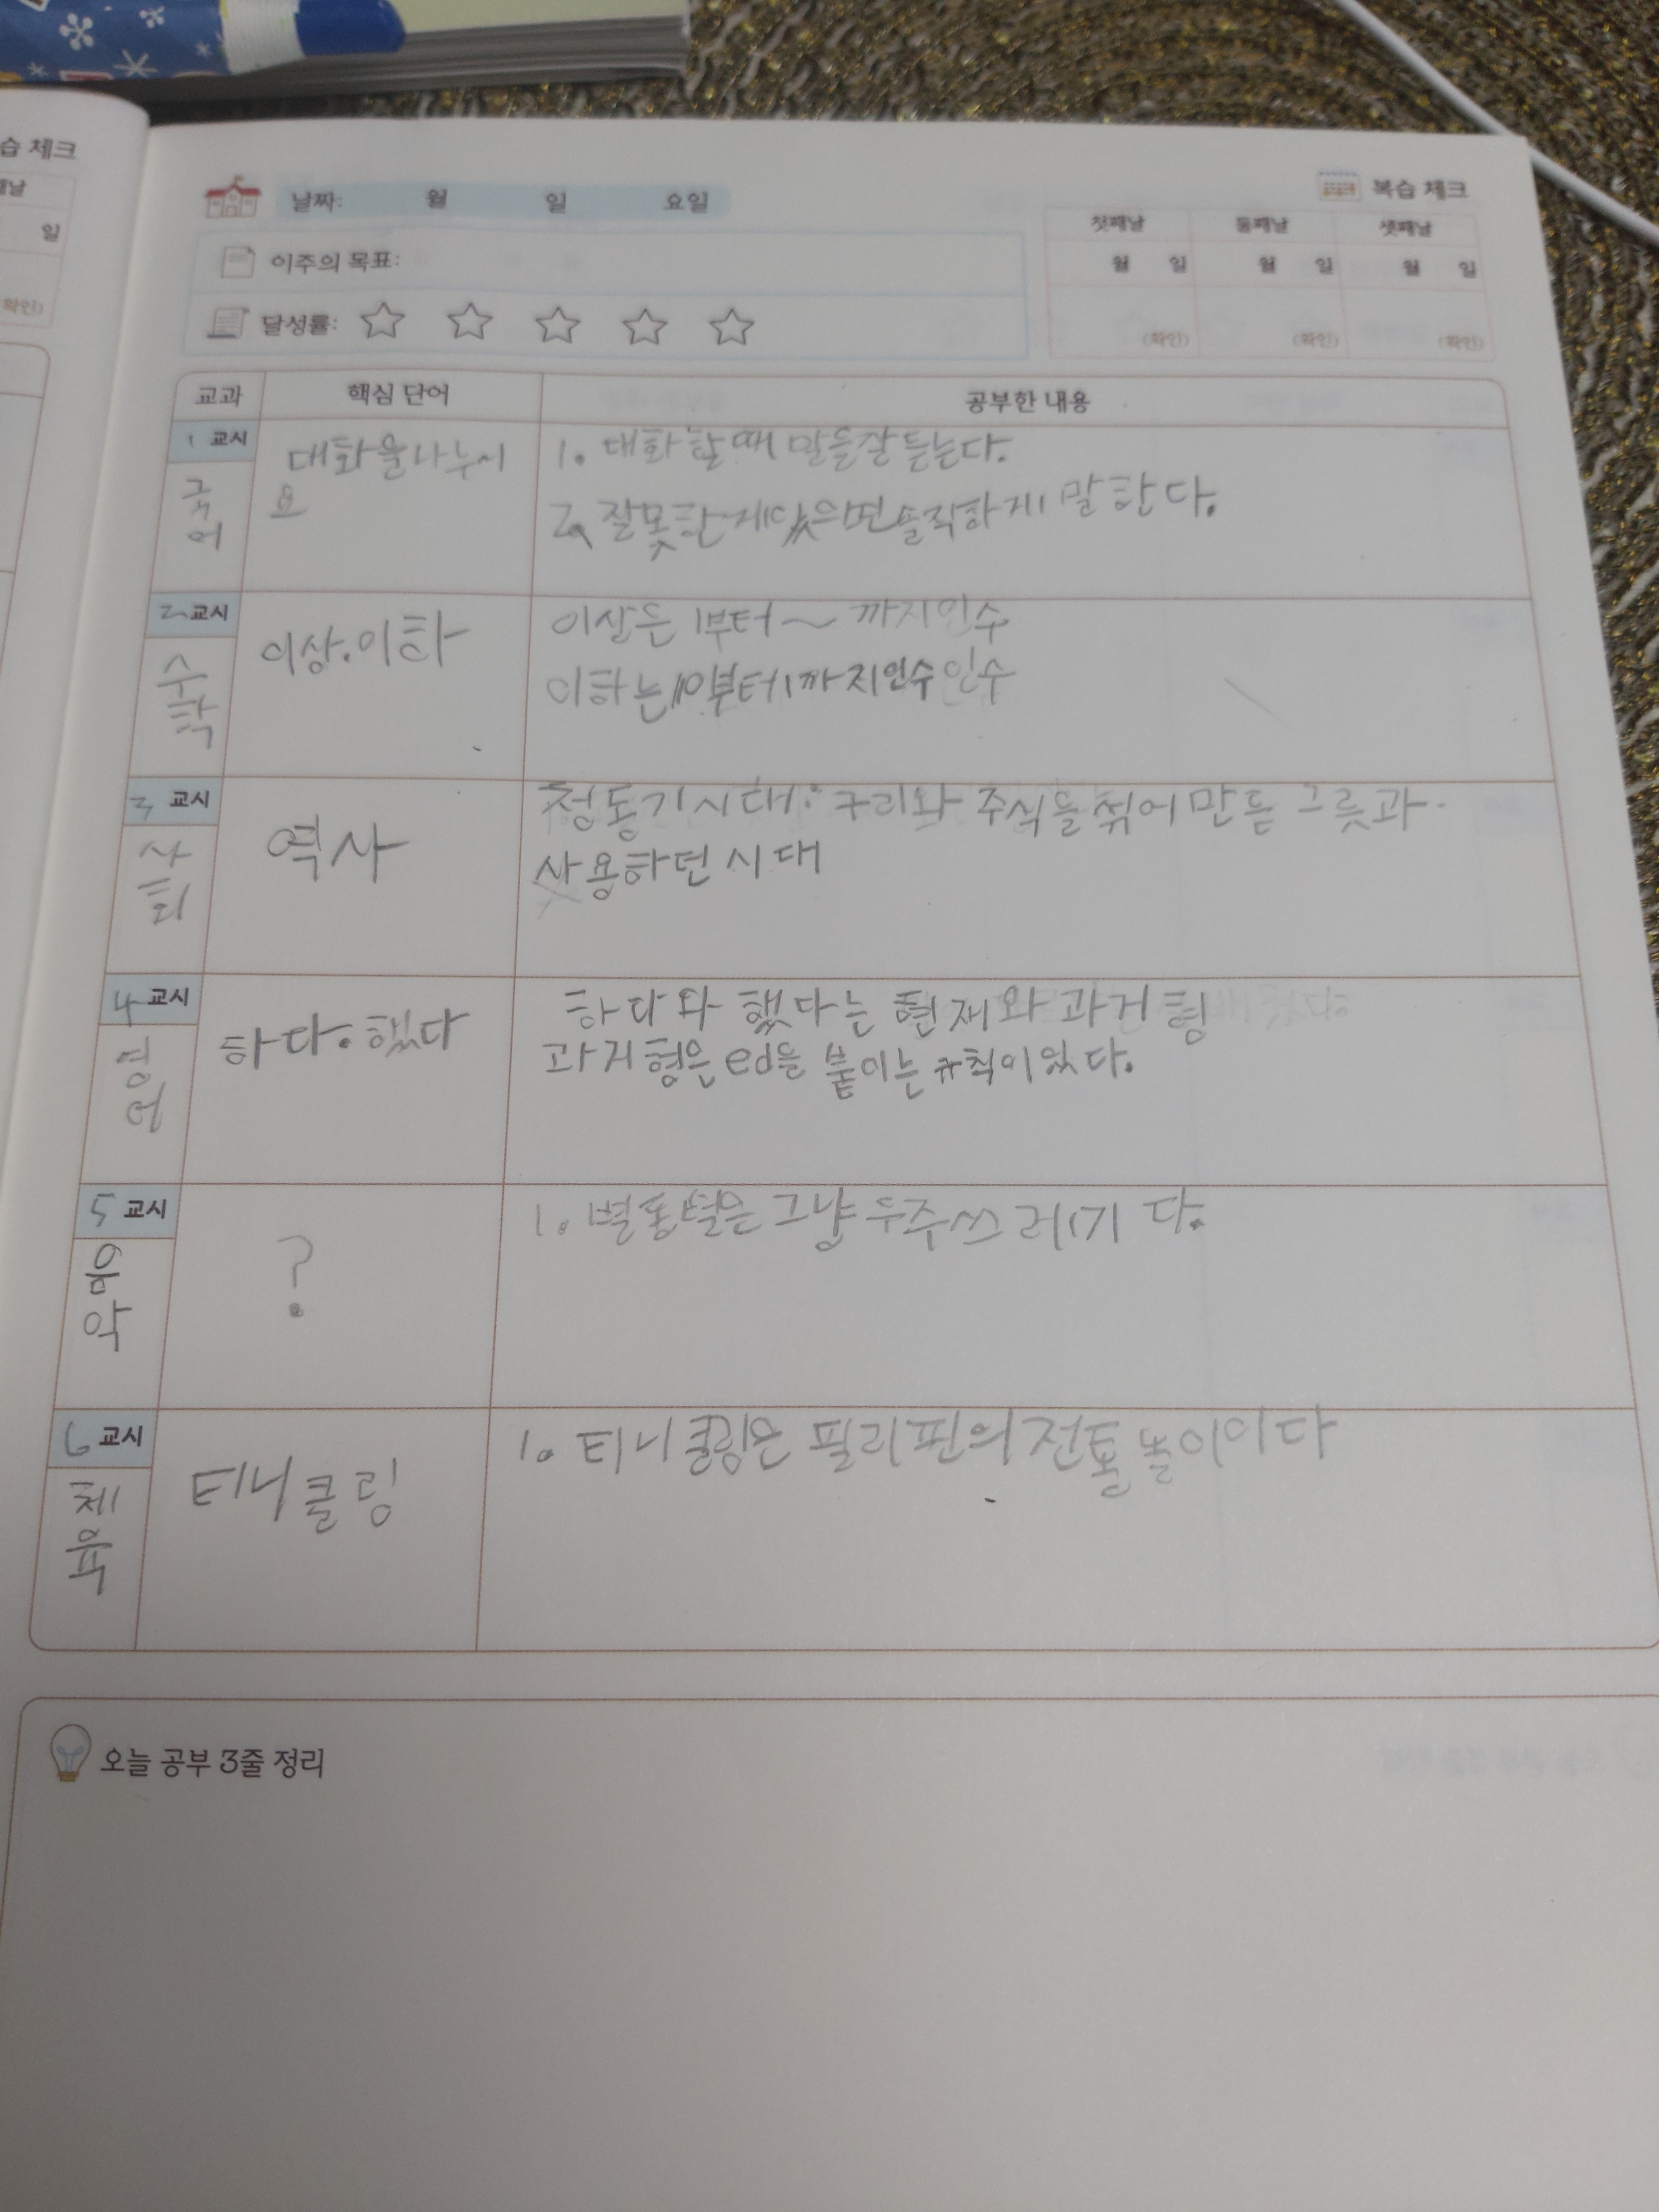 습 체크
째날
일
(확인)
날짜: 월 일 요일
복습 체크
이주의 목표:
첫째날 둘째날 셋째날
월 일 월 일 월 일
달성률:
(확인) (확인) (확인)
교과 핵심 단어 공부한 내용
1 교시
국어
대화를나누시
요
1. 대화할때 말을잘듣는다.
2. 잘못한게있으면솔직하게 말한다.
2 교시
수학
이상.이하
이상은 1부터~ 까지인수
이하는10부터1까지인수인수
3 교시
사회
역사
청동기시대: 구리와 주석을섞어만든 그릇과
사용하던시대
4 교시
영어
하다.했다
하다와 했다는 현재와과거형
과거형은ed을 붙이는규칙이있다.
5 교시
음악
?
1. 별똥별은 그냥 우주쓰레기다.
6 교시
체육
티니클링
1. 티니클링은 필리핀의전통놀이이다
오늘 공부 3줄 정리